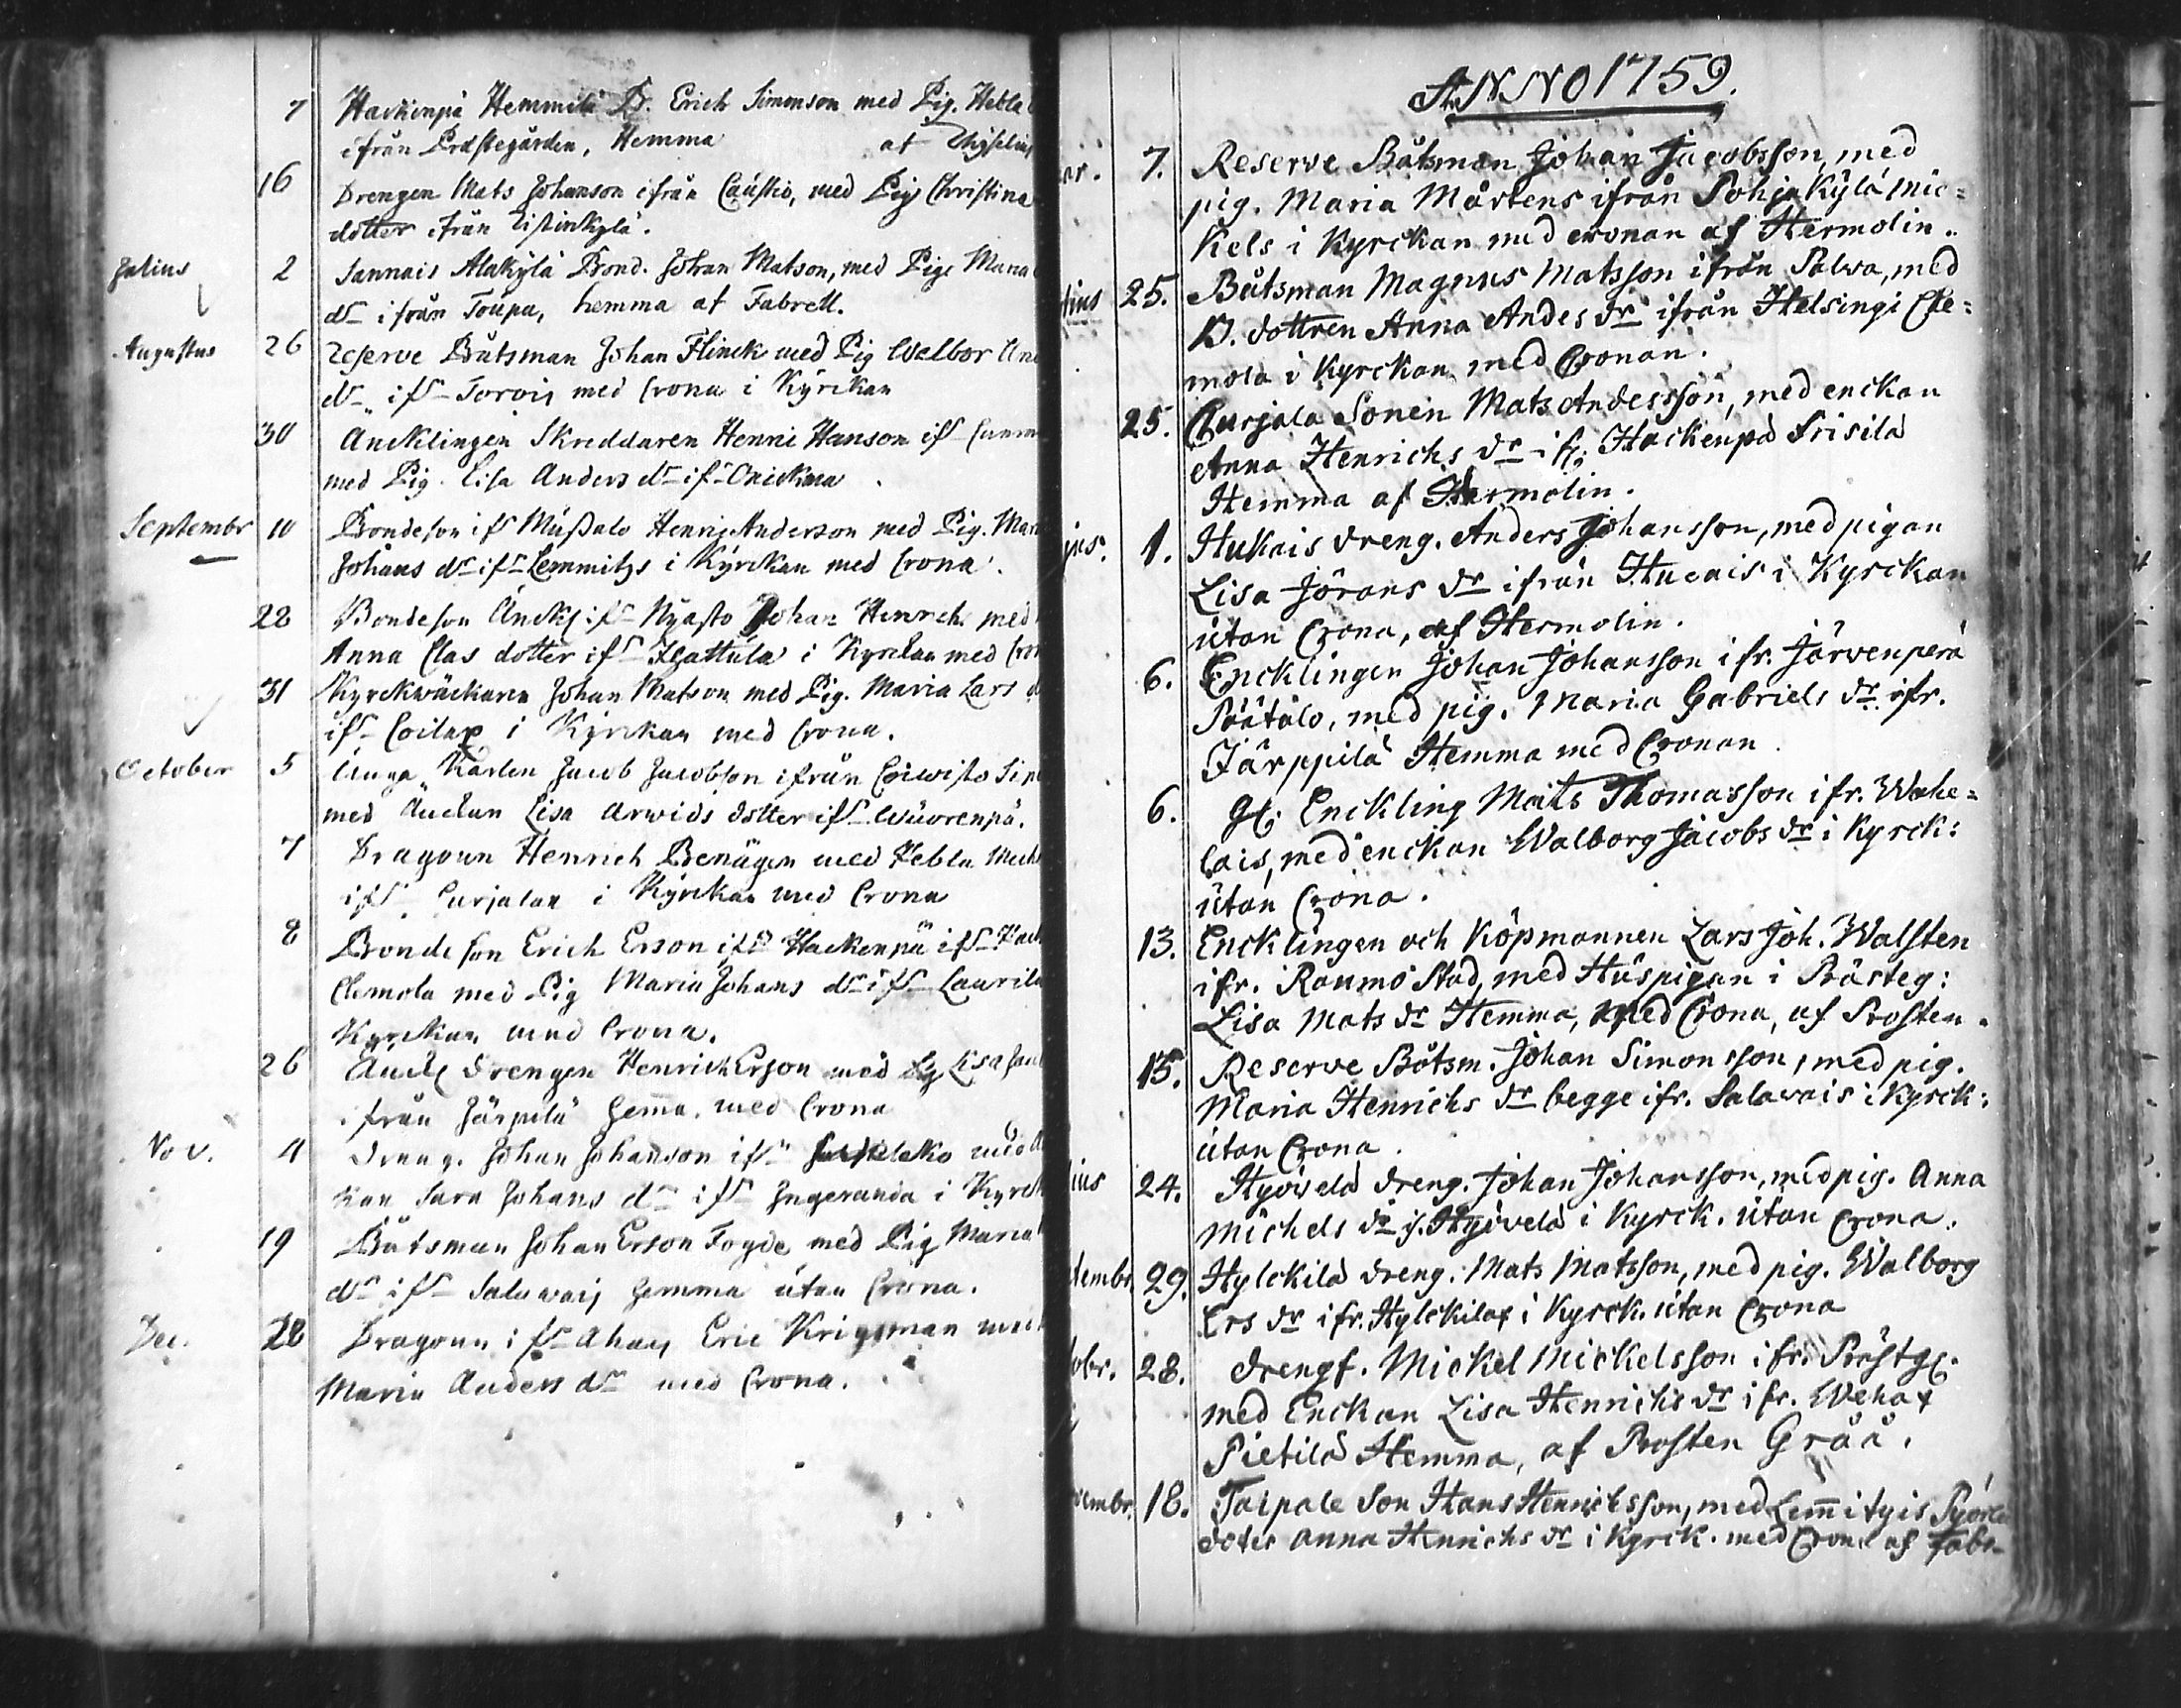 7 Hackenpä Hemmilä B. Erich Simonson med Pig. Hebla
ifrån Prästegården, Hemma af Thyselius
16 Drengen Mats Johanson ifrån Caustio, med Pig Christina
dotter ifrån Eistinkylä.
Julius 2 Sannais Alakylä Bond. Johan Matson, med Pige Maria
dr ifrån Toupa, hemma af Fabrell.
Augustus 26 Reserve Båtsman Johan Flinck med Pig Walbor And
dr ifr Torvis med Crona i Kyrckan
30 Ancklingen Skreddaren Henric Hanson ifr
med Pig. Lisa Anders dr ifr
Septembr 10 Bondeson ifr Mussalo Henric Anderson med Pig. Mar
Johans dr ifr Lemmitys i Kyrckan med Crona.
22 Bondeson Änckl ifr Nyasto Johan Henrich med
Anna Clas dotter ifr Hattula i Kyrckan med Cron
31 Kyrckwäckaren Johan Matson med Pig. Maria Lars d
ifr Coilax i Kyrckan med Crona.
October 5 Unga Karlen Jacob Jacobson ifrån Coiwisto
med Änckan Lisa Arwids dotter ifr Wuorenpä.
7 Dragoun Henrich Benägen med Hebla Mich
ifr Curjalax i Kyrckan med Crona
8 Bondeson Erich Erson ifr Hackenpä ifr
Clemola med Pig Maria Johans dr ifr Laurila
Kyrckan med Crona.
26 Änckl drengen Henrich Erson med Pig Lisa
ifrån Järpilä hemma med Crona
Nov. 4 Dreng. Johan Johanson ifr med
kan Sara Johans dr ifr Ingeranda i Kyrck
19 Båtsman Johan Erson Fogde med Pig Maria
dr ifr Saluwais hemma utan Crona.
Dec. 28 Dragoun ifr Ahais Eric Krigsman med
Maria Anders dr med Crona.
ANNO 1759.
ar. 7. Reserve Båtsman Johan Jacobsson, med
pig. Maria Mårtens ifrån Pohja Kylä Mic=
kels i Kyrckan med cronan af Hermolin.
tius 25. Båtsman Magnus Matsson ifrån Palva, med
B. dottren Anna Andes dr ifrån Helsingi Cle=
mola i Kyrckan med Cronan.
25. Curjala Sonen Mats Andersson, med enckan
Anna Henrichs dr ifr. Hackenpä Frisilä
Hemma af Hermolin.
jus. 1. Hukais dreng. Anders Johansson, med pigan
Lisa Jörans dr ifrån Hucais i Kyrckan
utan Crona, af Hermolin.
6. Encklingen Johan Johansson ifr. Järvenperä
Päätalo, med pig. Maria Gabriels dr ifr.
Järppilä Hemma med Cronan.
6. Gl. Enckling Mats Thomasson ifr. Wahe=
lais, med enckan Walborg Jacobs dr i Kyrck:
utan Crona.
13. Encklingen och Köpmannen Lars Joh. Walsten
ifr. Raumo Stad, med Huspigan i Prästeg:
Lisa Mats dr Hemma, med Crona, af Prosten.
15. Reserve Båtsm. Johan Simonsson, med pig.
Maria Henrichs dr begge ifr. Salavais i Kyrck:
utan Crona.
ius 24. Hyövelä dreng. Johan Johansson, med pig. Anna
Michels dr if. Hyövelä i Kyrck. utan Crona.
tembr. 29. Hylckilä dreng. Mats Matsson, med pig. Walborg
Ers dr ifr. Hylckilax i Kyrck. utan Crona
tobr. 28. drengf. Mickel Mickelsson ifr. Prästg.
med Enckan Lisa Henrichs dr ifr. Wehax
Pietilä Hemma, af Prosten Gråå.
vembr. 18. Taipale Son Hans Henrichsson, med Lemmityis
doter Anna Henrichs dr i Kyrck. med Crona af Fabr